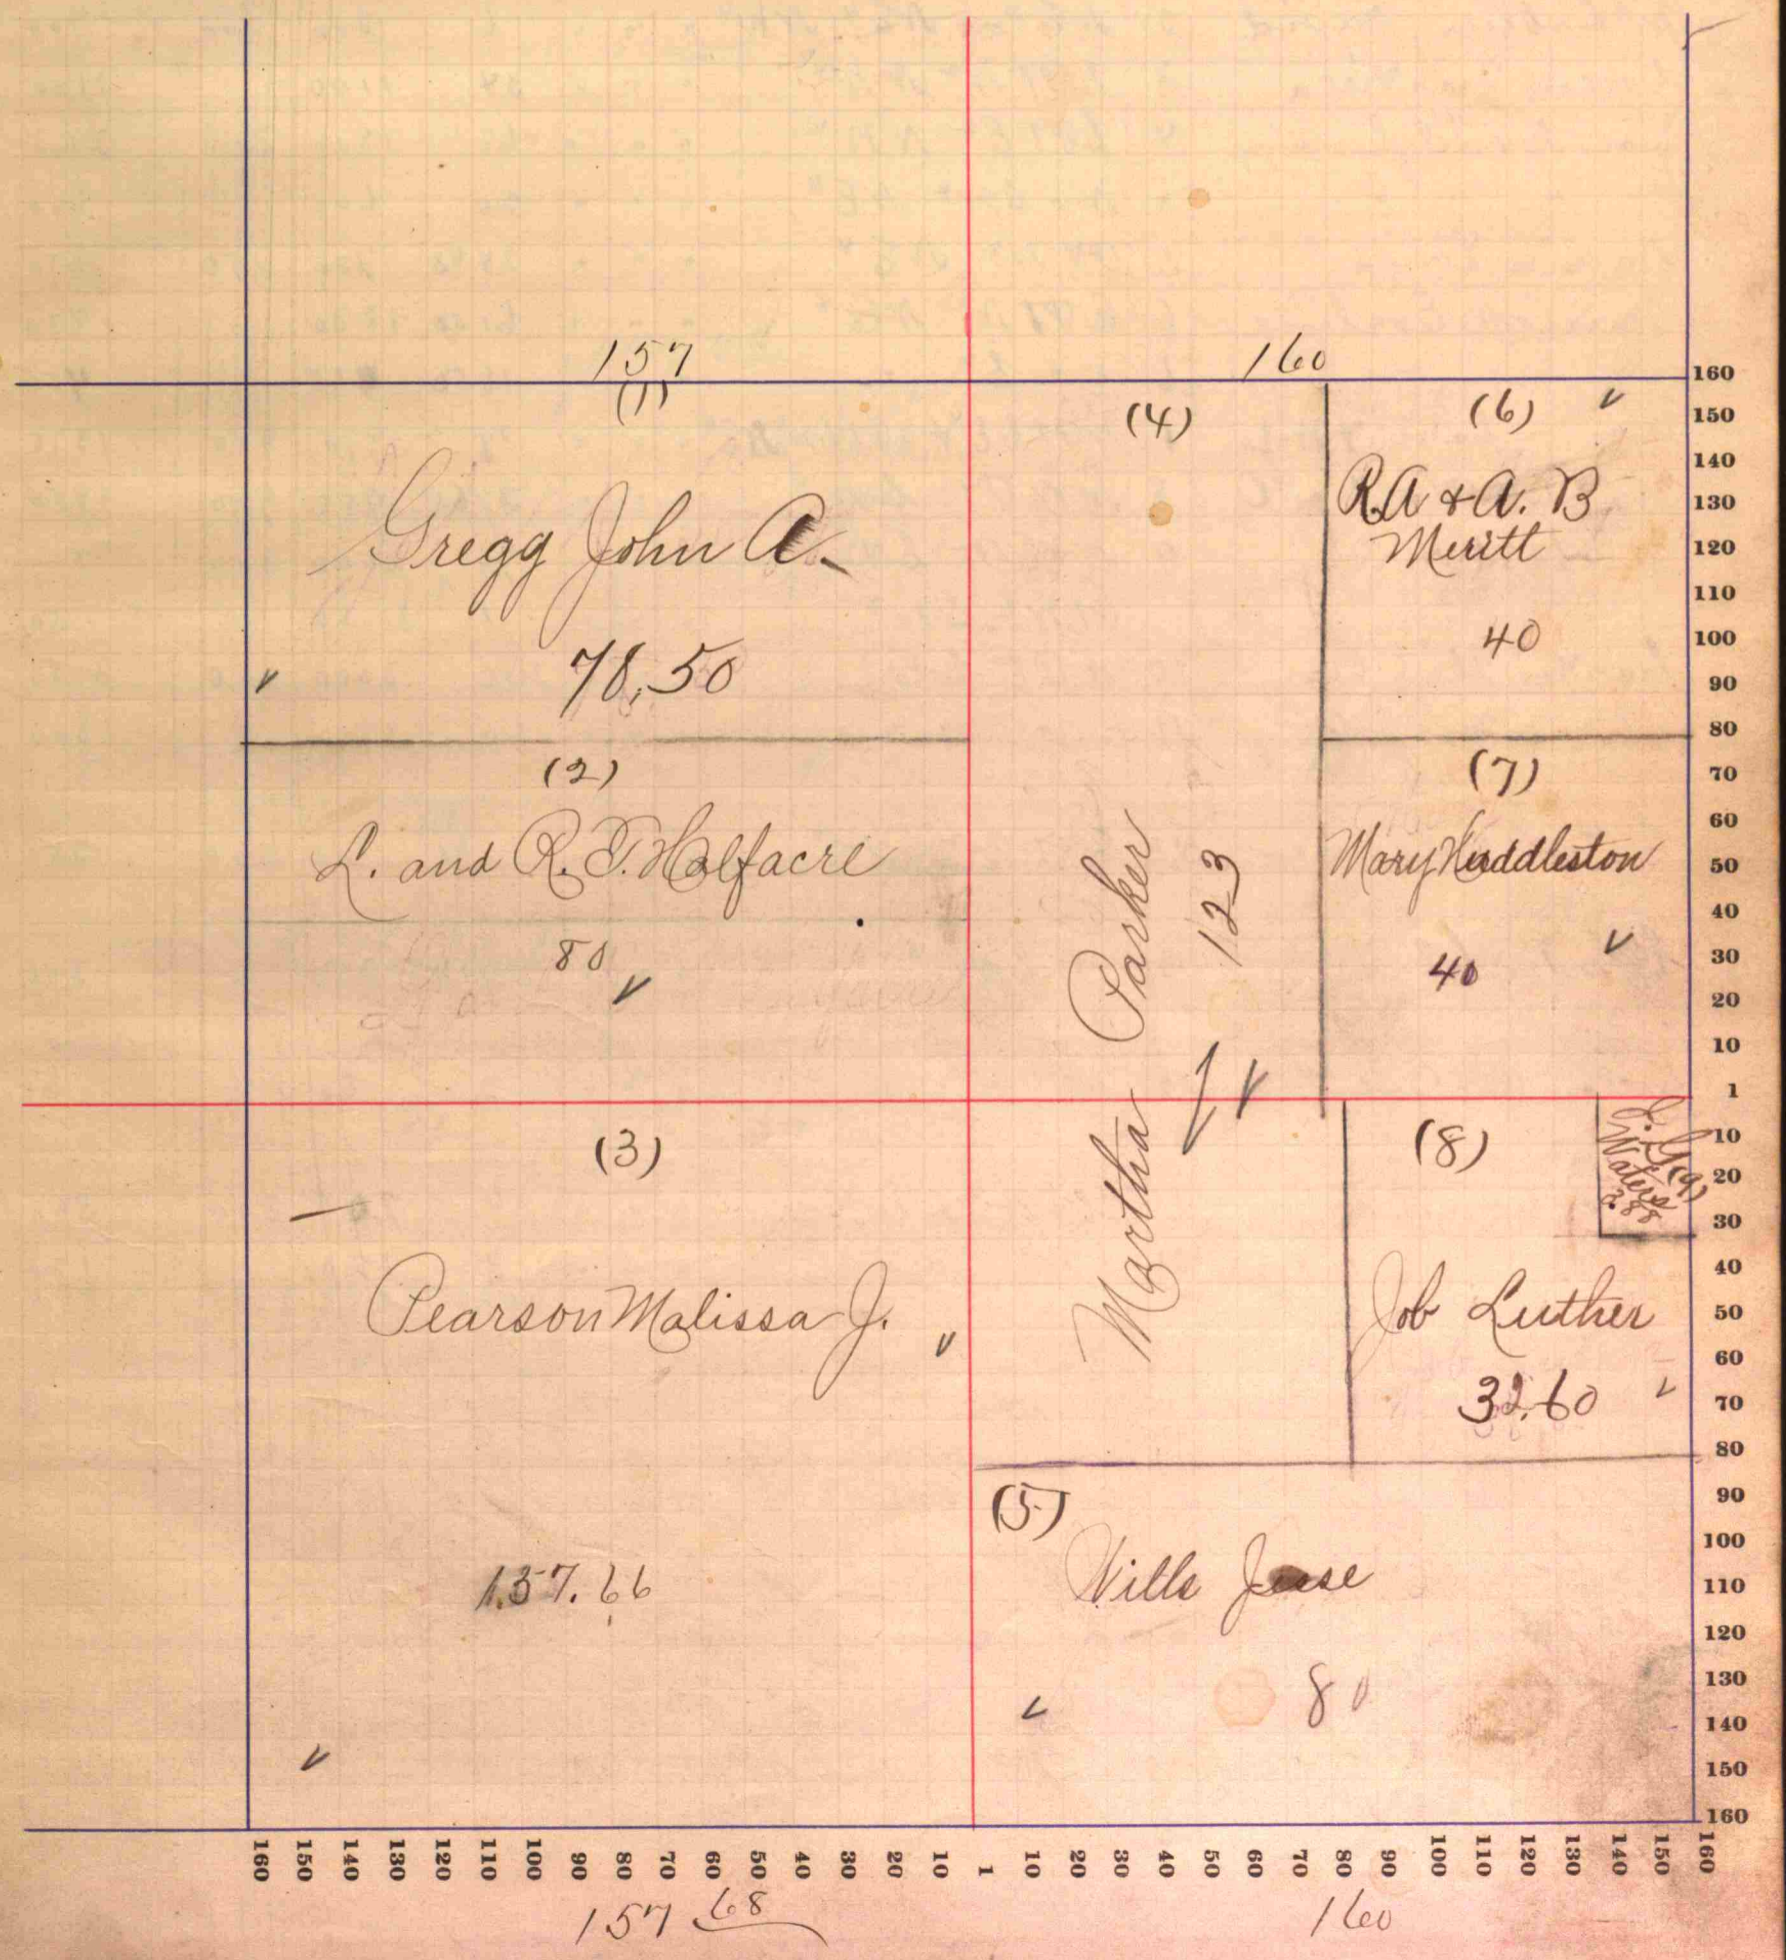 157
160
(1)
Gregg John A.
78.50
(2)
L. and R. T. Halfacre
80
(3)
Pearson Malissa J.
157.66
(4)
Martha Parker
123
(5)
Wills Jesse
80
(6)
R.A & A. B
Meritt
40
(7)
Mary Huddleston
40
(8)
Job Luther
32.60
(9)
Waters
160
150
140
130
120
110
100
90
80
70
60
50
40
30
20
10
1
10
20
30
40
50
60
70
80
90
100
110
120
130
140
150
160
160 150 140 130 120 110 100 90 80 70 60 50 40 30 20 10 1 10 20 30 40 50 60 70 80 90 100 110 120 130 140 150 160
157 68
160